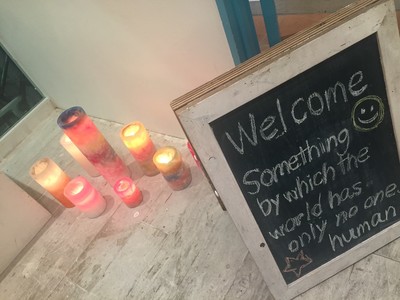 Welcome
Something
by which the
world has
only no one
human